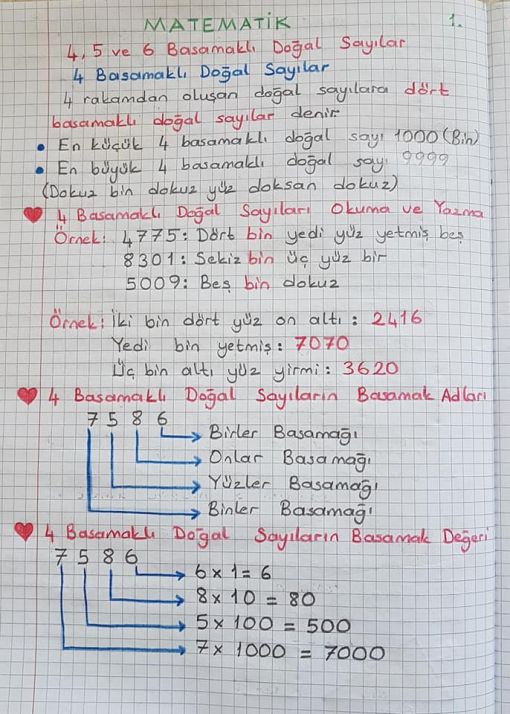 MATEMATİK 1.
4, 5 ve 6 Basamaklı Doğal Sayılar
4 Basamaklı Doğal Sayılar
4 rakamdan oluşan doğal sayılara dört
basamaklı doğal sayılar denir
• En küçük 4 basamaklı doğal sayı 1000 (Bin)
• En büyük 4 basamaklı doğal sayı 9999
(Dokuz bin dokuz yüz doksan dokuz)
4 Basamaklı Doğal Sayıları Okuma ve Yazma
Örnek: 4775: Dört bin yedi yüz yetmiş beş
8301: Sekiz bin üç yüz bir
5009: Beş bin dokuz
Örnek: İki bin dört yüz on altı: 2416
Yedi bin yetmiş: 7070
Üç bin altı yüz yirmi: 3620
4 Basamaklı Doğal Sayıların Basamak Adları
7 5 8 6
Birler Basamağı
Onlar Basamağı
Yüzler Basamağı
Binler Basamağı
4 Basamaklı Doğal Sayıların Basamak Değeri
7 5 8 6
6 x 1 = 6
8 x 10 = 80
5 x 100 = 500
7 x 1000 = 7000